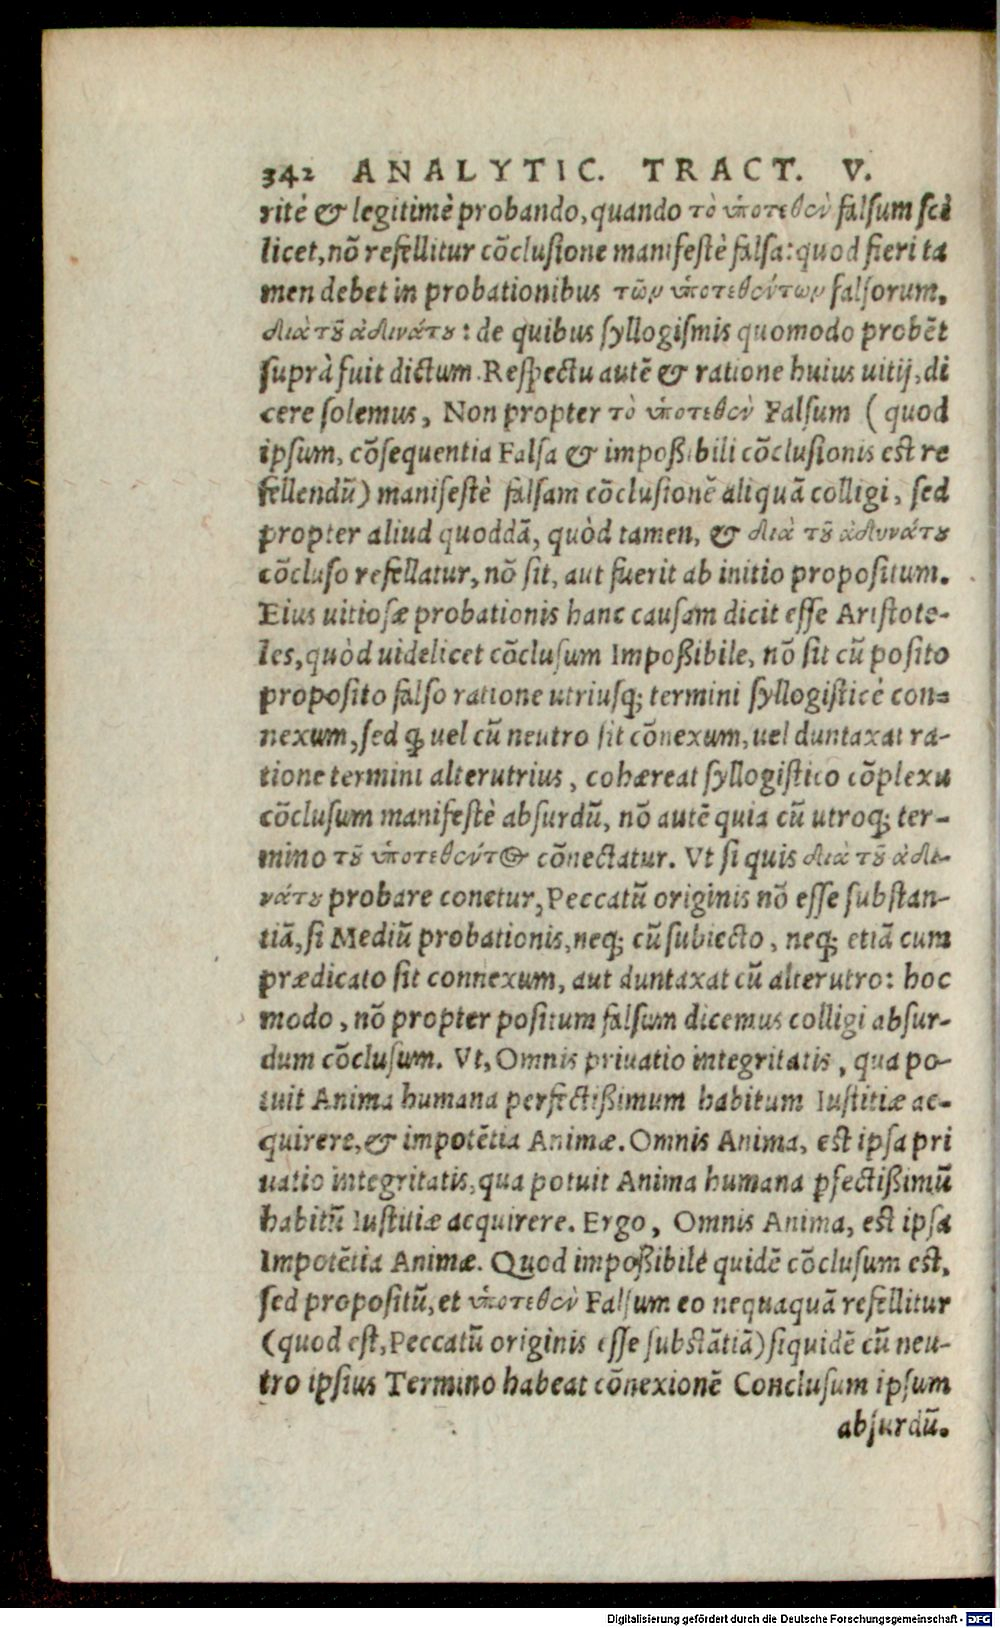 342 ANALYTIC. TRACT. V.
ritè & legitimè probando, quando τὸ ὑποτεθὲν falsum sci
licet, nō refellitur cōclusione manifestè falsa: quod fieri ta
men debet in probationibus τῶν ὑποτεθέντων falsorum.
διὰ τοῦ ἀδυνάτου: de quibus syllogismis quomodo probēt
suprà fuit dictum. Respectu autē & ratione huius uitij, di
cere solemus, Non propter τὸ ὑποτεθὲν Falsum ( quod
ipsum, cōsequentia Falsa & impoßibili cōclusionis est re
fellendū) manifestè falsam cōclusionē aliquā colligi, sed
propter aliud quoddā, quòd tamen, & διὰ τοῦ ἀδυνάτου
cōcluso refellatur, nō sit, aut fuerit ab initio propositum.
Eius uitiosæ probationis hanc causam dicit esse Aristote-
les, quòd uidelicet cōclusum Impoßibile, nō sit cū posito
proposito falso ratione utriusq; termini syllogisticè con=
nexum, sed ꝙ uel cū neutro sit cōnexum, uel duntaxat ra-
tione termini alterutrius, cohæreat syllogistico cōplexu
cōclusum manifestè absurdū, nō autē quia cū utroq; ter-
mino τοῦ ὑποτεθέντος cōnectatur. Vt si quis διὰ τοῦ ἀδυ-
νάτου probare conetur, Peccatū originis nō esse substan-
tiā, si Mediū probationis, neq; cū subiecto, neq; etiā cum
prædicato sit connexum, aut duntaxat cū alterutro: hoc
modo, nō propter positum falsum dicemus colligi absur-
dum cōclusum. Vt, Omnis priuatio integritatis, qua po-
tuit Anima humana perfectißimum habitum Iustitiæ ac-
quirere, & impotētia Animæ. Omnis Anima, est ipsa pri
uatio integritatis, qua potuit Anima humana ꝑfectißimū
habitū Iustitiæ acquirere. Ergo, Omnis Anima, est ipsa
Impotētia Animæ. Quod impoßibile quidē cōclusum est,
sed propositū, et ὑποτεθὲν Falsum eo nequaquā refellitur
(quod est, Peccatū originis esse substātiā) siquidē cū neu-
tro ipsius Termino habeat cōnexionē Conclusum ipsum
absurdū.
Digitalisierung gefördert durch die Deutsche Forschungsgemeinschaft - DFG